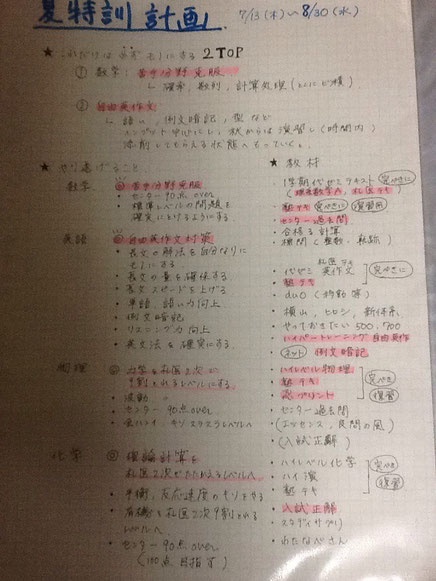 夏特訓計画
7/13(木)〜8/30(水)
★ これだけは必ずモノにする 2TOP
① 数学：苦手分野克服
↳ 確率, 数列, 計算処理(とくにど積)
② 自由英作文
↳ 語い, 例文暗記, 型など
インプット中心にし, 秋からは演習し(時間内)
添削してもらえる状態へもっていく。
★ やり遂げること
数学
◎ 苦手分野克服
・センター90点over
・標準レベルの問題を
確実にとけるようにする
英語
◎ 自由英作文対策
・長文の解法を自分なりに
モノにする
・長文の量を確保する
・長文スピードを上げる
・単語, 語い力向上
・例文暗記
・リスニング力向上
・英文法を確実にする
物理
◎ 力学を札医2次に
9割とれるレベルにする
・波動 〃
・センター 90点over
化学
◎ 理論計算を
札医2次でたたかえるレベルへ
・平衡, 反応速度のモリをする
・有機を札医2次9割とれる
レベルへ
・センター 90点over
(100点目指す)
★ 教材
・1学期代ゼミテキスト 完ぺきに
・塾テキ 完ぺきに 復習用
・センター過去問
・合格る計算
・機関(整数, 軌跡)
札医テキ
・代ゼミ 英作文
・塾テキ
完ぺきに
・duo(移動等)
・横山, ヒロシ, 新体系
・やっておきたい500, 700
・ハイパートレーニング自由英作
ネット 例文暗記
・ハイレベル物理
・塾テキ
・塾プリント
完ぺき
復習
・センター過去問
・(エッセンス, 良問の風)
・(入試正解)
・ハイレベル化学
・ハイ演
・塾テキ
完ぺき
復習
・入試正解
・スタディサプリ
・わたなべさん